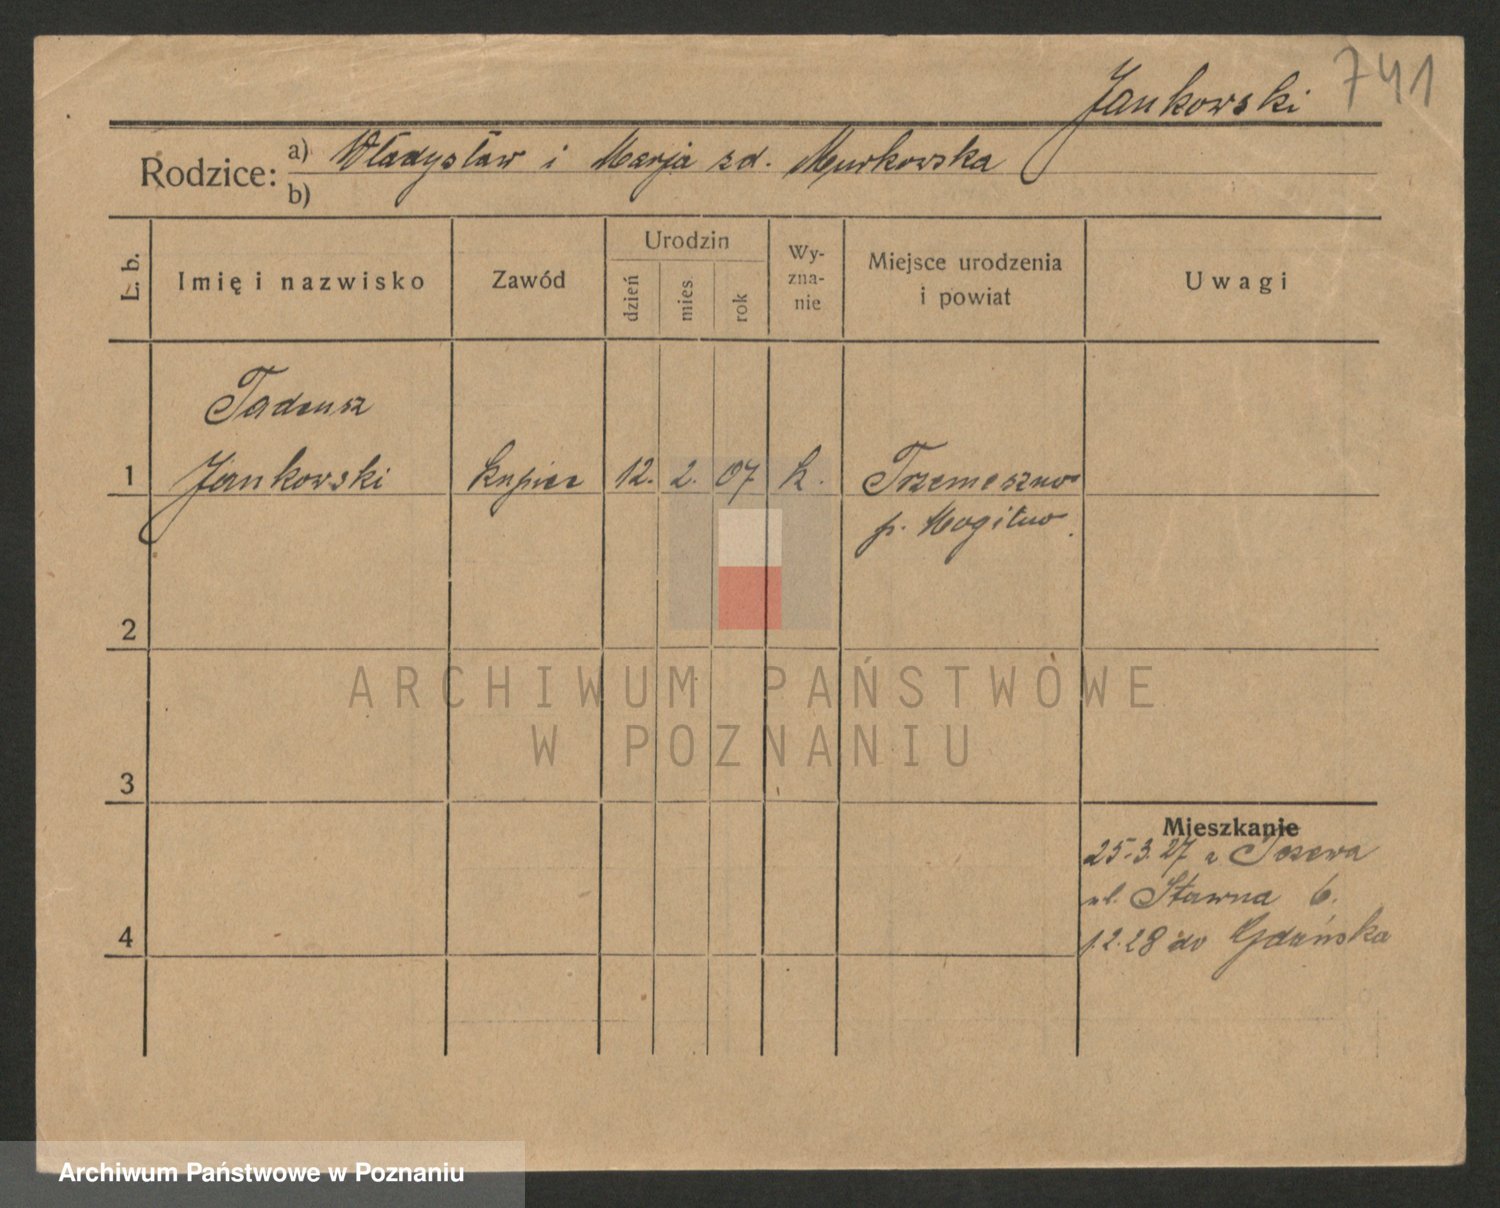 741
Jankowski
Rodzice: a) Władysław i Marja zd. Murkowska
b)
L. b.
Imię i nazwisko
Zawód
Urodzin
dzień
mies
rok
Wy-
zna-
nie
Miejsce urodzenia
i powiat
Uwagi
Tadeusz
1 Jankowski kupiec 12. 2. 07 k. Trzemeszno
p. Mogilno.
2
ARCHIWUM PAŃSTWOWE
W POZNANIU
3
Mieszkanie
25.3.27 z Tczewa
ul. Stawna 6.
4
1.2.28 do Gdańska
Archiwum Państwowe w Poznaniu